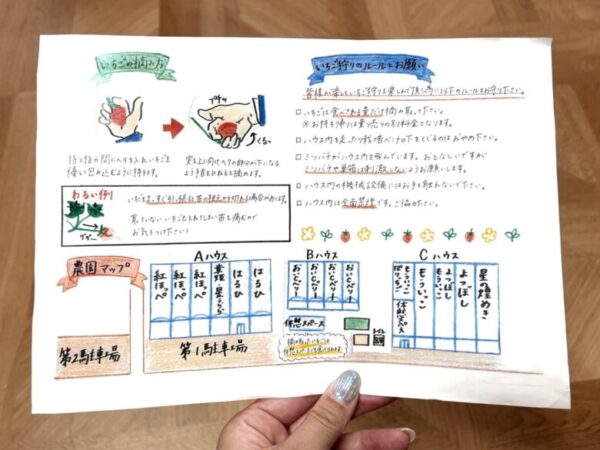 いちごの摘み方
ブチッ
くるっ
指と指の間にヘタを入れいちごを
優しく包み込むように持ちます。
実を上に向け、ヘタの部分が下になる
ように手首をひねると摘めます。
わるい例
いちごをまっすぐ引っ張ると苗の根元から切れる場合があります。
育っていないいちごもとれてしまい苗も痛むので
お気をつけ下さい!
いちご狩りのルールとお願い
皆様が楽しくいちご狩りを楽しんで頂く為に以下のルールをお守り下さい。
いちごは食べきれる量だけ摘み取って下さい。
※お持ち帰りは量り売りの別料金となります。
ハウス内を走ったり栽培ベッドの下をくぐるのはおやめ下さい。
ミツバチがハウス内を飛んでいます。おとなしいですが
ミツバチや巣箱は刺激しないようお願いします。
ハウス内の機械、設備にはお手を触れないで下さい。
ハウス内は全面禁煙です。ご協力下さい。
農園マップ
Aハウス
紅ほっぺ
紅ほっぺ
紅ほっぺ
はるひ
はるひ
Bハウス
おいCベリー
おいCベリー
おいCベリー
おいCベリー
休憩スペース
トイレ
Cハウス
もういっこ
休憩スペース
もういっこ
よつぼし
もういっこ
よつぼし
星の煌めき
第2駐車場
第1駐車場